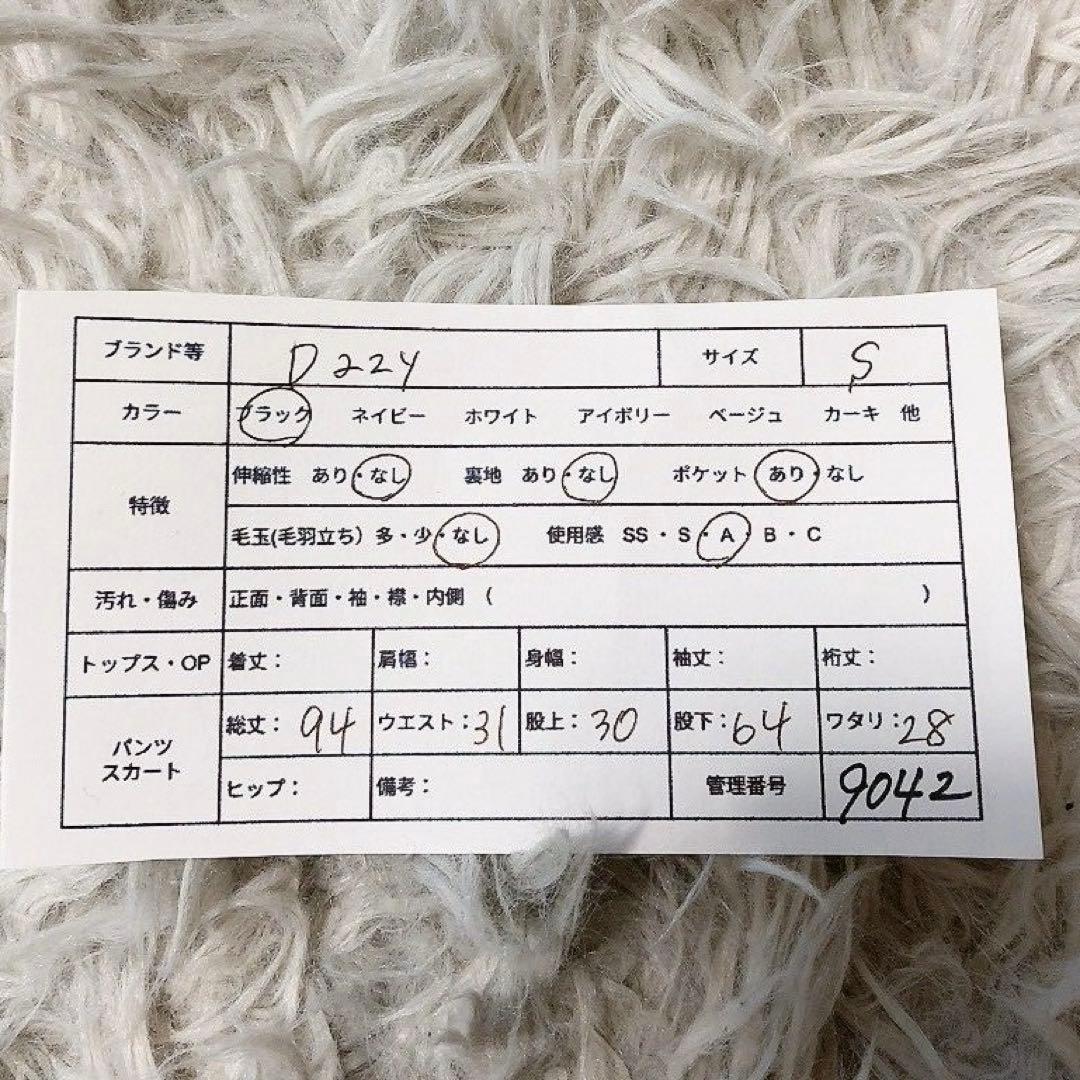 ブランド等 Dazzy サイズ S
カラー ブラック ネイビー ホワイト アイボリー ベージュ カーキ 他
特徴 伸縮性 あり・なし 裏地 あり・なし ポケット あり・なし
毛玉(毛羽立ち) 多・少・なし 使用感 SS・S・A・B・C
汚れ・傷み 正面・背面・袖・襟・内側 ( )
トップス・OP 着丈: 肩幅: 身幅: 袖丈: 裄丈:
パンツ スカート 総丈: 94 ウエスト: 31 股上: 30 股下: 64 ワタリ: 28
ヒップ: 備考: 管理番号 9042